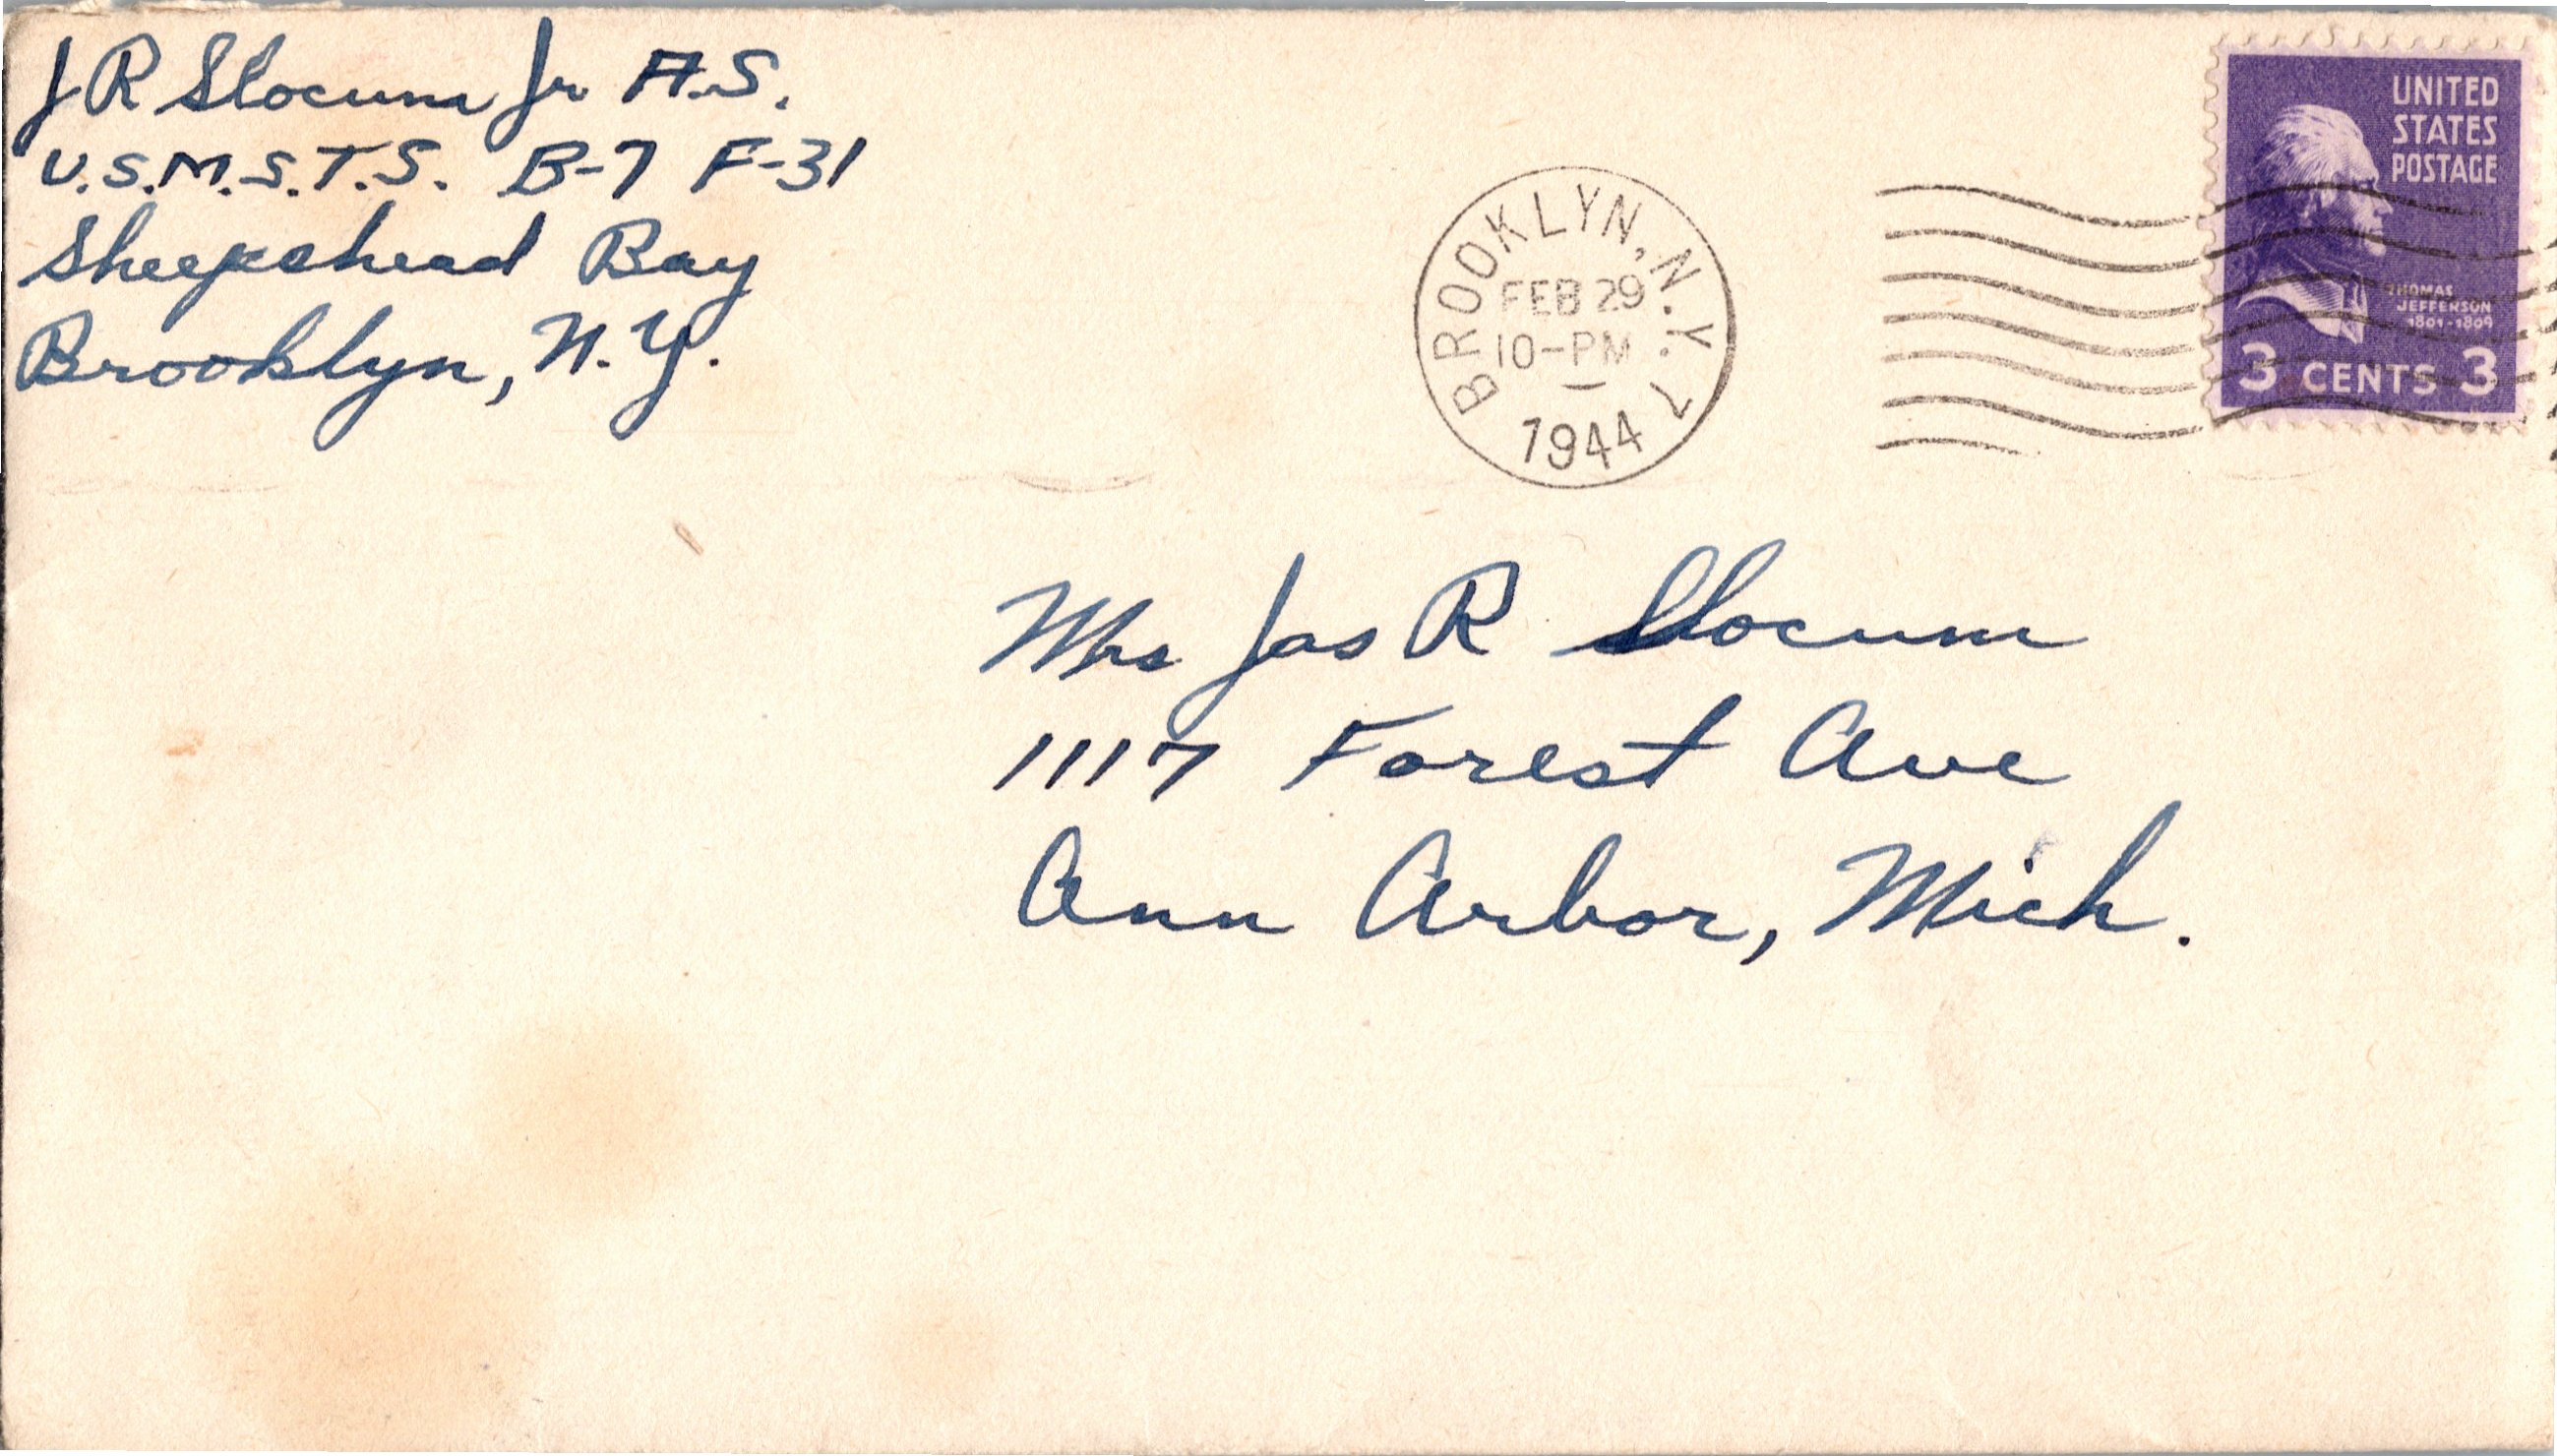 J R Slocum Jr A.S.
U.S.M.S.T.S. B-7 F-31
Sheepshead Bay
Brooklyn, N.Y.
BROOKLYN, N.Y. 7
FEB 29
10-PM
1944
UNITED
STATES
POSTAGE
THOMAS
JEFFERSON
1801-1809
3 CENTS 3
Mrs Jas R Slocum
1117 Forest Ave
Ann Arbor, Mich.